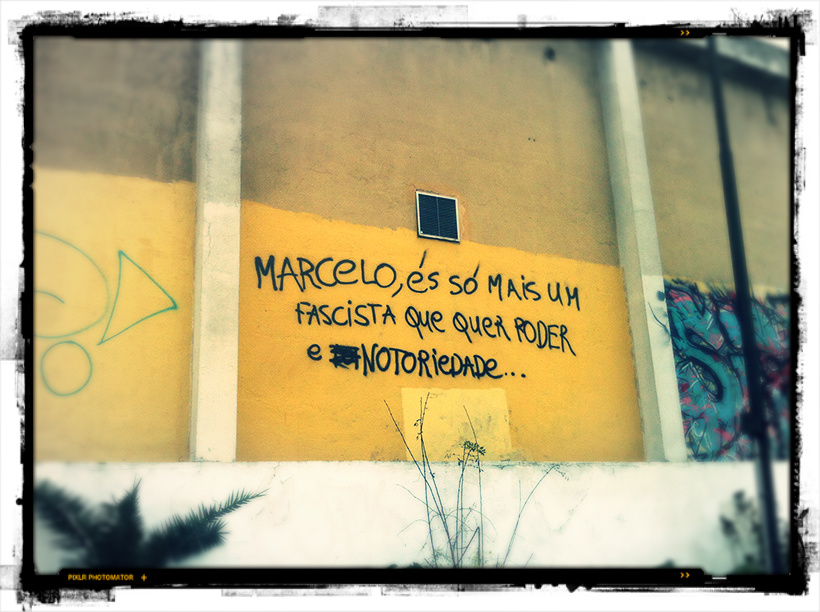 MARCELO, éS SÓ MAiS UM
FASCiSTA QUe QUeR PODER
e NOTORieDADe...
PIXLR PHOTOMATOR +